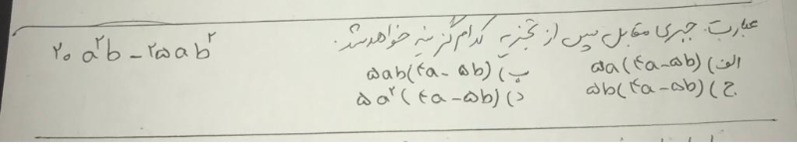 عبارت جبری مقابل پس از تجزیه کدام گزینه خواهد شد. ۲۰a²b - ۲۵ab²
الف) ۵a(۴a-۵b) ب) ۵ab(۴a-۵b)
ج) ۵b(۴a-۵b) د) ۵a²(۴a-۵b)